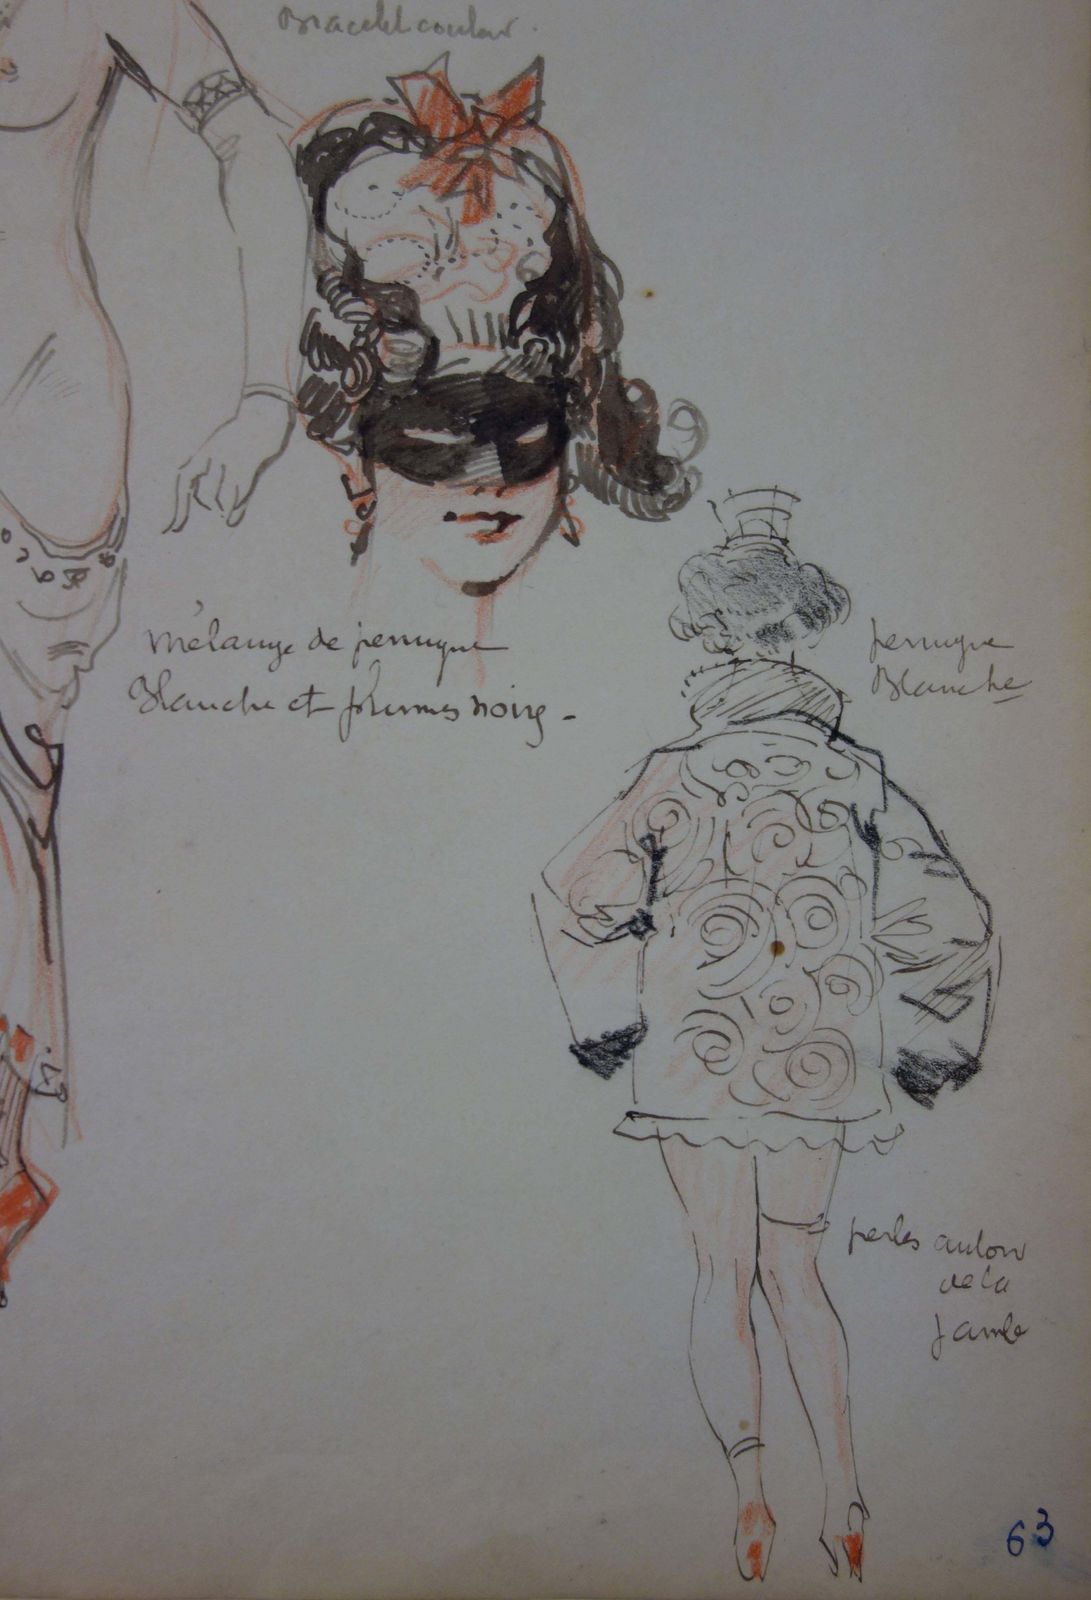 Bracelet couleur.
Mélange de perruque
Blanche et plumes noires -
perruque
Blanche
perles autour
de la
Jambe
63